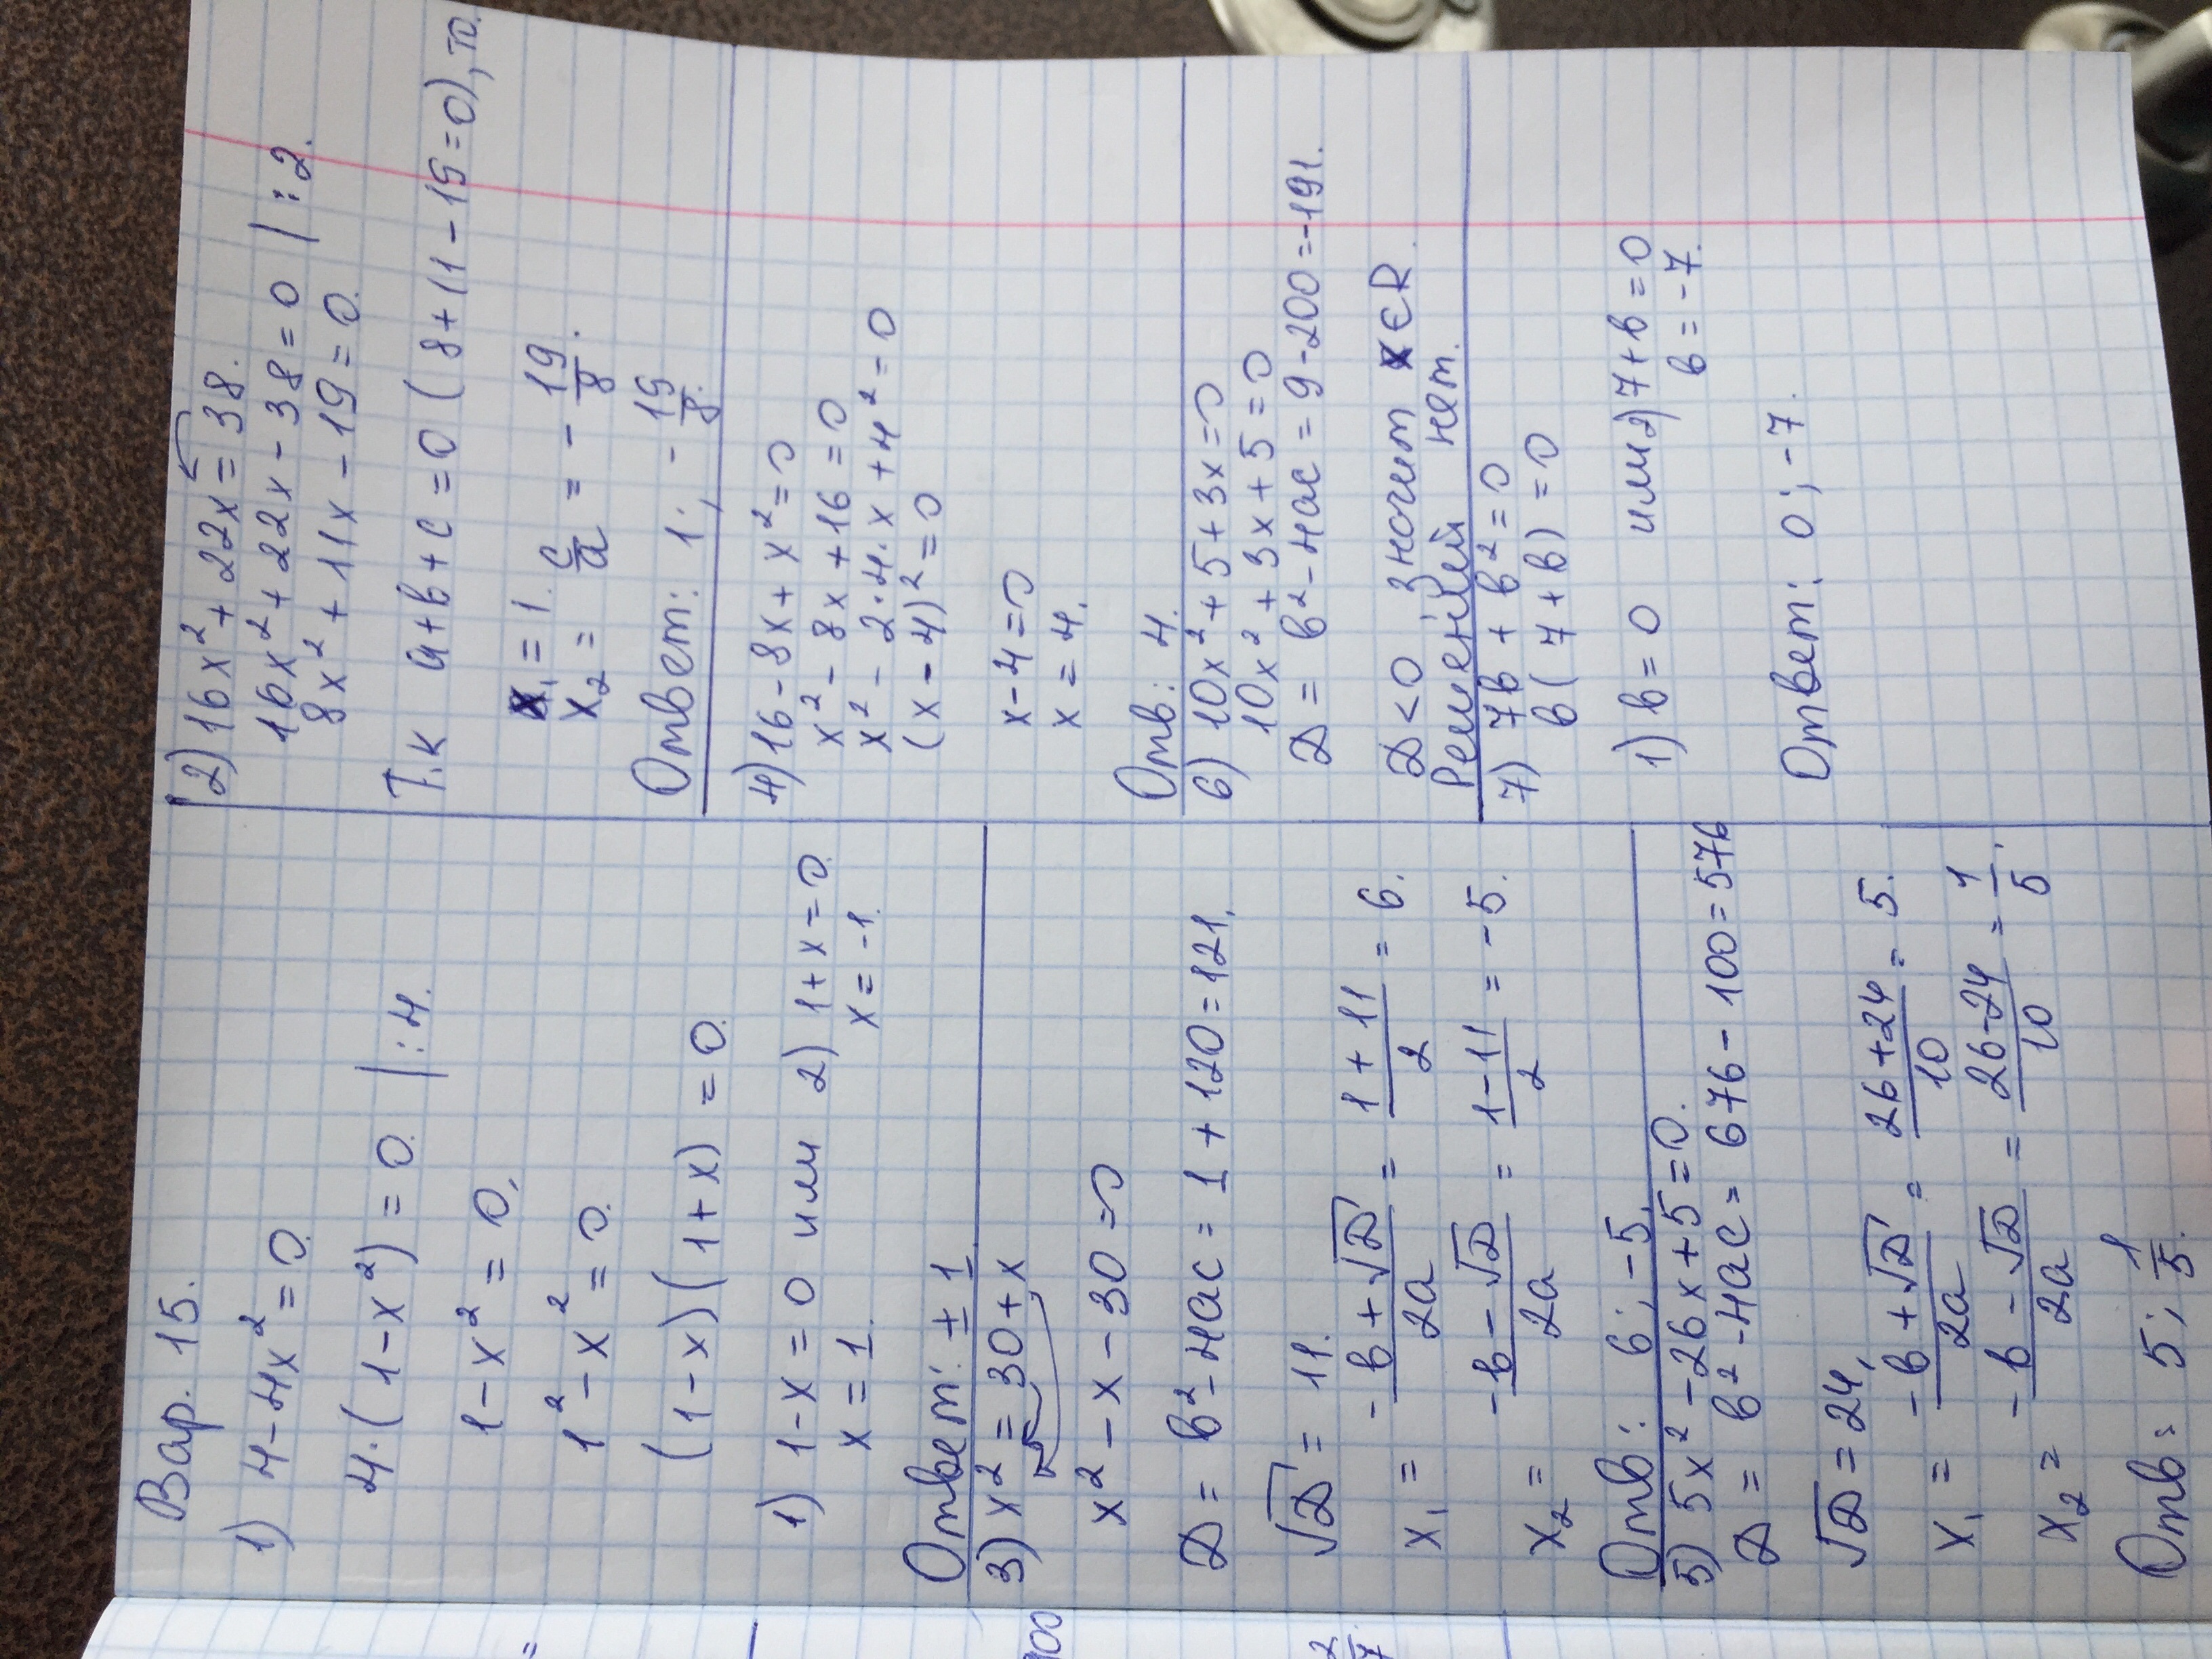 Вар. 15.
1) 4-4x²=0.
4·(1-x²)=0. |:4.
1-x²=0,
1²-x²=0.
(1-x)(1+x)=0.
1) 1-x=0 или 2) 1+x=0.
x=1. x=-1.
Ответ: ±1
3) x²=30+x
x²-x-30=0
D=b²-4ac=1+120=121.
√D=11.
x₁= (-b+√D)/2a = (1+11)/2 = 6.
x₂= (-b-√D)/2a = (1-11)/2 = -5.
Отв: 6; -5.
5) 5x²-26x+5=0.
D=b²-4ac=676-100=576
√D=24,
x₁= (-b+√D)/2a = (26+24)/10 = 5.
x₂= (-b-√D)/2a = (26-24)/10 = 1/5.
Отв: 5; 1/5.
2) 16x²+22x=38.
16x²+22x-38=0 |:2.
8x²+11x-19=0.
Т.к a+b+c=0 (8+11-19=0), то.
x₁=1.
x₂= c/a = -19/8.
Ответ: 1; -19/8.
4) 16-8x+x²=0
x²-8x+16=0
x²-2·4·x+4²=0
(x-4)²=0
x-4=0
x=4.
Отв: 4.
6) 10x²+5+3x=0
10x²+3x+5=0
D=b²-4ac=9-200=-191.
D<0 значит x∈R
Решений нет.
7) 7b+b²=0
b(7+b)=0
1) b=0 или 2) 7+b=0
b=-7.
Ответ: 0; -7.
=
100
2
7